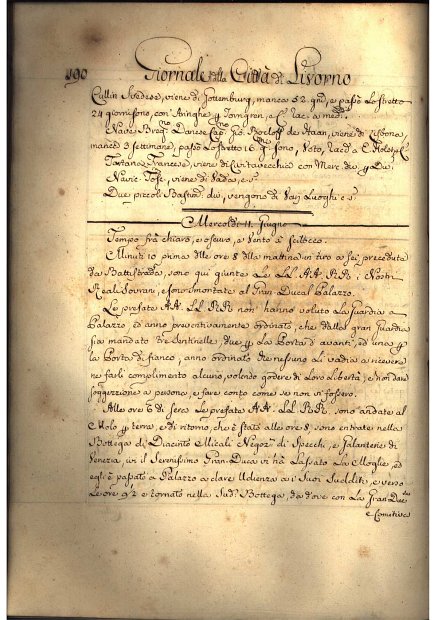 190 Giornale della Città di Livorno
Cullin Svedese, viene di Gottemburg, manca 52 gni, e passò Lo stretto
24 giorni sono, con Aringhe, racc. a med.
Nave Danese Cap. de Haan, viene di Lisbona,
manca 3 settimane, passò Lo stretto 16 g. sono, Voto, racc.
Tartana Francese, viene di Civitavecchia con Merc. div.
Navic. Tosc. viene di Vada, e s.
Due piccoli Bastim. div. vengono di Varj Luoghi e s.
Mercoldì 11. Giugno
Tempo frà chiaro, e oscuro, a Vento à Scilocco.
Minuti 10 prima Alle ore 8 della mattina in tiro a sei preceduta
da Battistrada, sono quì giunte Le LL. AA. RR. Nostri
Reali Sovrani, e sono smontate al Gran Ducal Palazzo.
Le prefate AA. LL. RR. non hanno voluto La Guardia a
Palazzo, ed anno preventivamente ordinato, che dalla gran Guardia
sia mandato tre Sentinelle, due La Porta d'avanti, ed una
La Porta di fianco, anno ordinato che nessuno Li vadia a ricevere
ne farli complimento alcuno, volendo godere di Loro Libertà, e non dare
soggezzione a persona, e fare conto come se non vi fossero.
Alle ore 6 di sera Le prefate AA. LL. RR. sono andate al
Molo terra, e di ritorno, che è stato alle ore 8 sono entrate nella
Bottega di Diacinto Micali Negoz. di Specchi, e Galanterie di
Venezia, ivi il Serenissimo Gran-Duca vi hà Lassato La Moglie, ed
egli è passato a Palazzo a dare Udienza a i Suoi Sudditi, e verso
Le ore 9½ è tornato nella Sud. Bottega, da dove con La Gran Duc.
e Comitiva